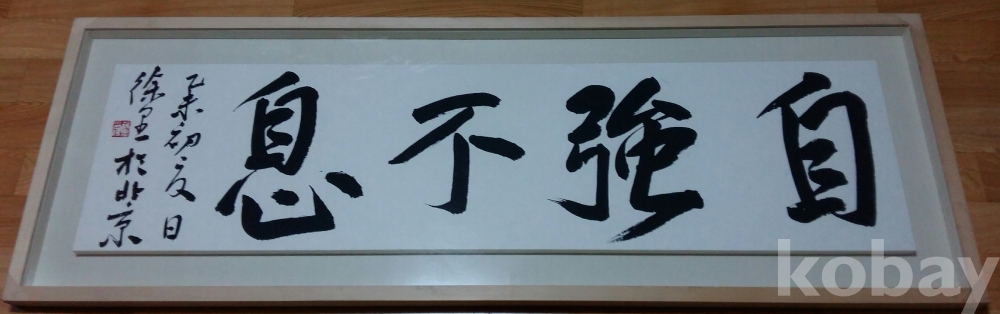 自強不息
乙未初夏日
徐 於北京
kobay